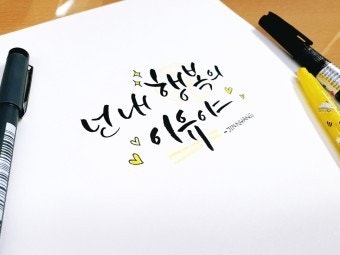 넌 내 행복의
이유야